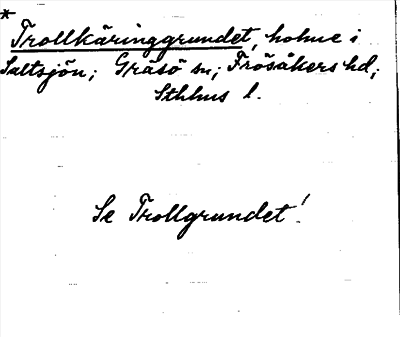 * Trollkäringgrundet, holme i
Saltsjön; Gräsö sn; Frösåkers hd;
Sthlms l.
Se Trollgrundet!